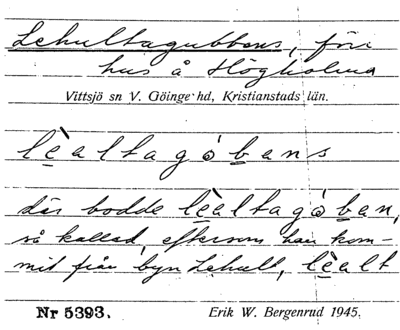 Lehultagubbens, förr
hus å Högholma
Vittsjö sn V. Göinge hd, Kristianstads län.
lèaltagòbans
där bodde lèaltagòban,
så kallad, eftersom han kom-
mit från byn Lehult, lèalt
Nr 5393. Erik W. Bergenrud 1945.